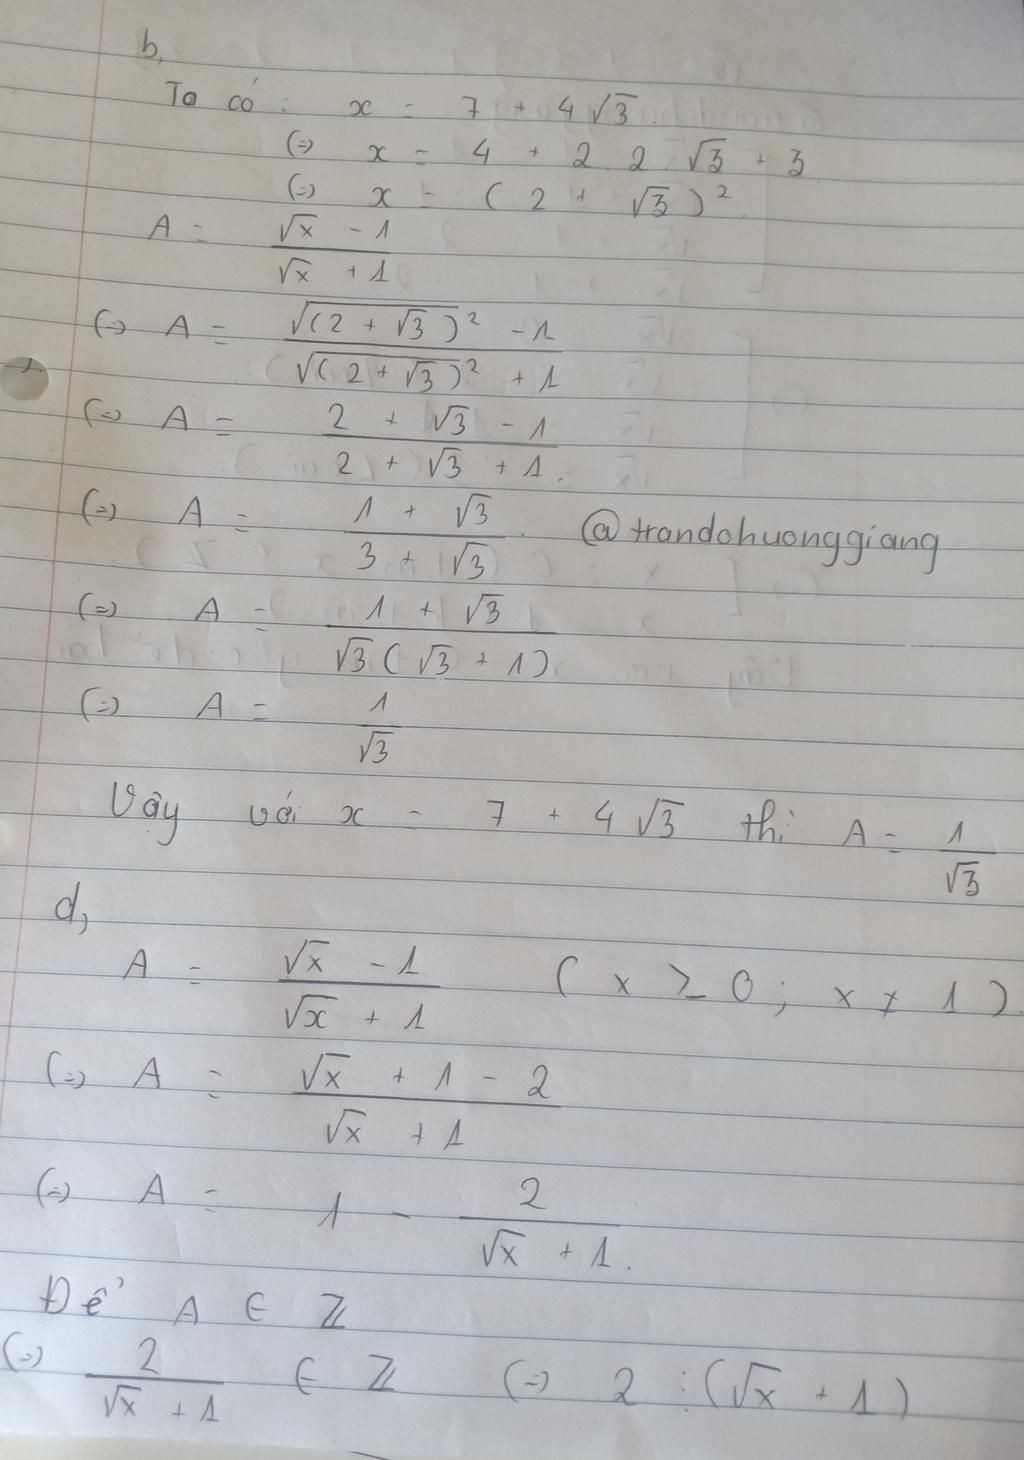 b,
Ta có: x = 7 + 4√3.
(=) x = 4 + 2.2.√3 + 3
(=) x = (2 + √3)².
A = (√x - 1)/(√x + 1)
(=) A = (√(2 + √3)² - 1)/(√(2 + √3)² + 1)
(=) A = (2 + √3 - 1)/(2 + √3 + 1).
(=) A = (1 + √3)/(3 + √3). @trandohuonggiang
(=) A = (1 + √3)/(√3(√3 + 1))
(=) A = 1/√3
Vậy với x = 7 + 4√3 thì A = 1/√3
d,
A = (√x - 1)/(√x + 1) (x ≥ 0; x ≠ 1).
(=) A = (√x + 1 - 2)/(√x + 1)
(=) A = 1 - 2/(√x + 1).
Để A ∈ Z
(=) 2/(√x + 1) ∈ Z (=) 2 ⋮ (√x + 1)